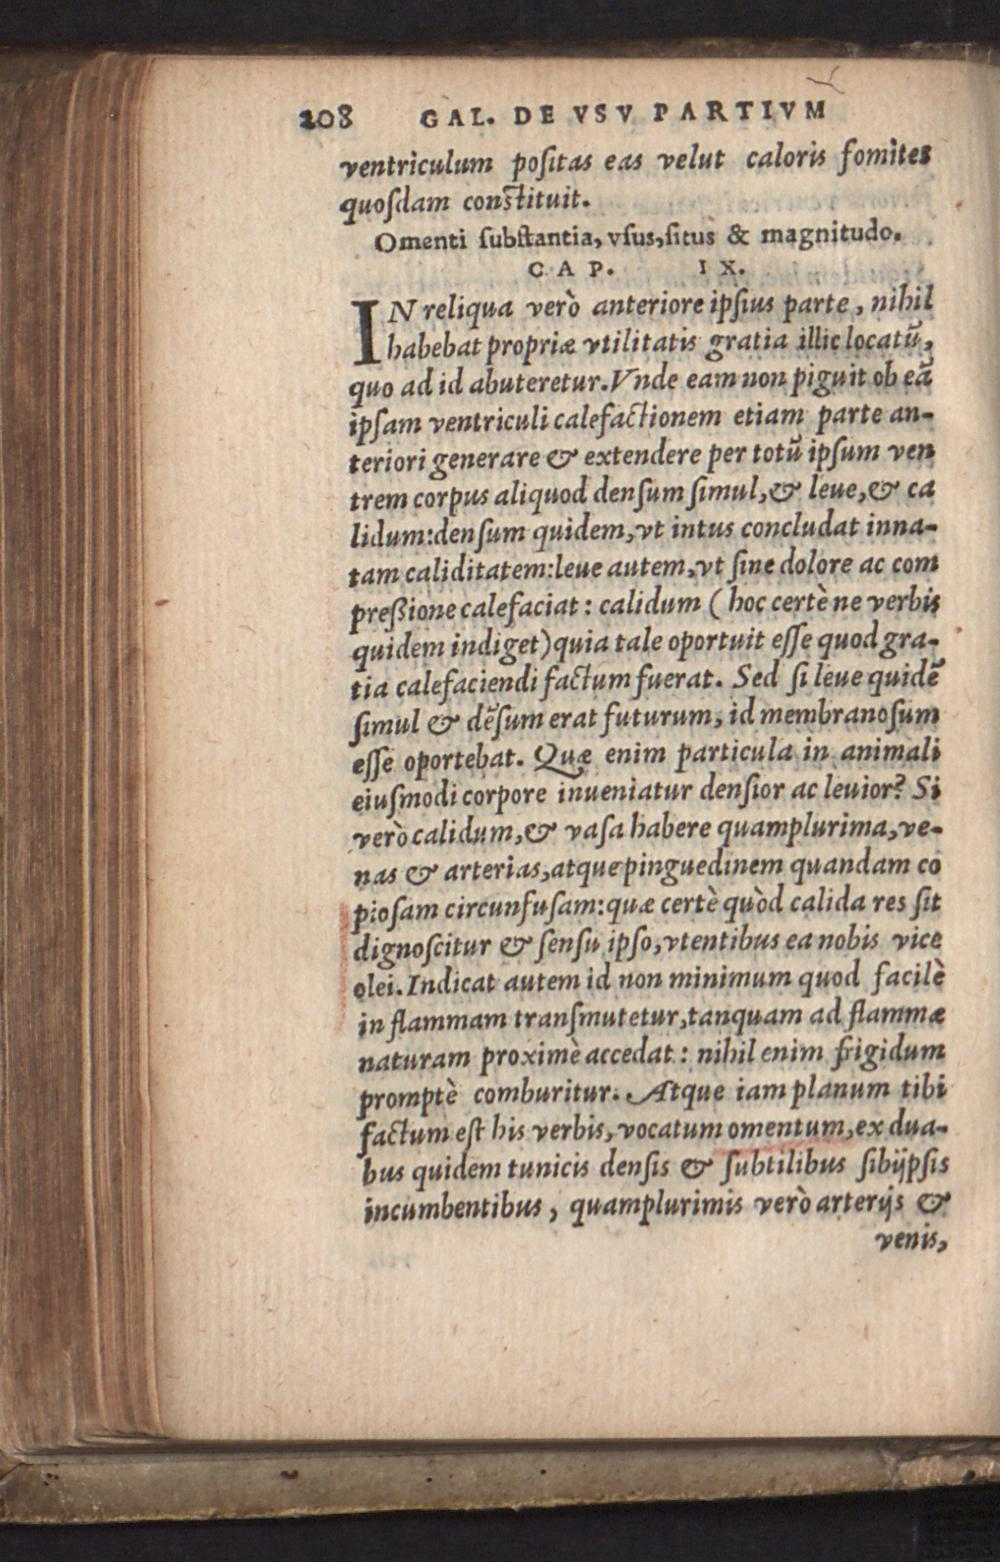 208 GAL. DE VSV PARTIVM
ventriculum poſitas eas velut caloris fomites
quoſdam conſtituit.
Omenti ſubſtantia, vſus, ſitus & magnitudo.
CAP. IX.
IN reliqua verò anteriore ipſius parte, nihil
habebat propriæ vtilitatis gratia illic locatũ,
quo ad id abuteretur. Vnde eam non piguit ob eã
ipſam ventriculi calefactionem etiam parte an-
teriori generare & extendere per totũ ipſum ven
trem corpus aliquod denſum ſimul, & leue, & ca
lidum: denſum quidem, vt intus concludat inna-
tam caliditatem: leue autem, vt ſine dolore ac com
preßione calefaciat: calidum (hoc certè ne verbis
quidem indiget) quia tale oportuit eſſe quod gra-
tia calefaciendi factum fuerat. Sed ſi leue quidẽ
ſimul & dẽſum erat futurum, id membranoſum
eſſe oportebat. Quæ enim particula in animali
eiuſmodi corpore inueniatur denſior ac leuior? Si
verò calidum, & vaſa habere quamplurima, ve-
nas & arterias, atque pinguedinem quandam co
pioſam circunfuſam: quæ certè quòd calida res ſit
dignoſcitur & ſenſu ipſo, vtentibus ea nobis vice
olei. Indicat autem id non minimum quod facilè
in flammam tranſmutetur, tanquam ad flammæ
naturam proximè accedat: nihil enim frigidum
promptè comburitur. Atque iam planum tibi
factum eſt his verbis, vocatum omentum, ex dua-
bus quidem tunicis denſis & ſubtilibus ſibijpſis
incumbentibus, quamplurimis verò arterijs &
venis,